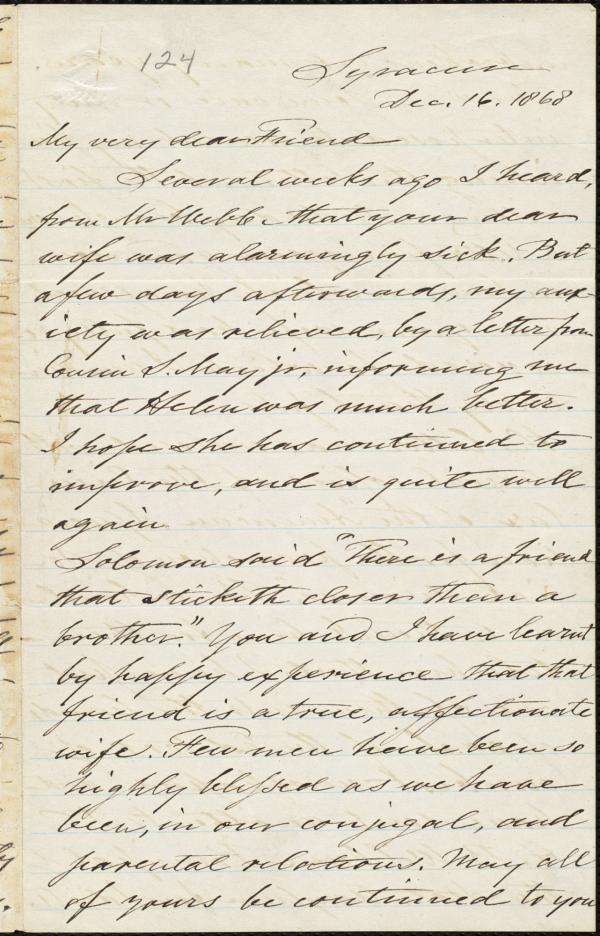 124
Syracuse
Dec. 16. 1868
My very dear Friend
Several weeks ago I heard,
from Mr Webb, that your dear
wife was alarmingly sick. But
a few days afterwards, my anx-
iety was relieved, by a letter from
Cousin S. May jr, informing me
that Helen was much better.
I hope she has continued to
improve, and is quite well
again
Solomon said "There is a friend
that sticketh closer than a
brother." You and I have learnt
by happy experience that that
friend is a true, affectionate
wife. Few men have been so
highly blessed as we have
been, in our conjugal, and
parental relations. May all
of yours be continued to you